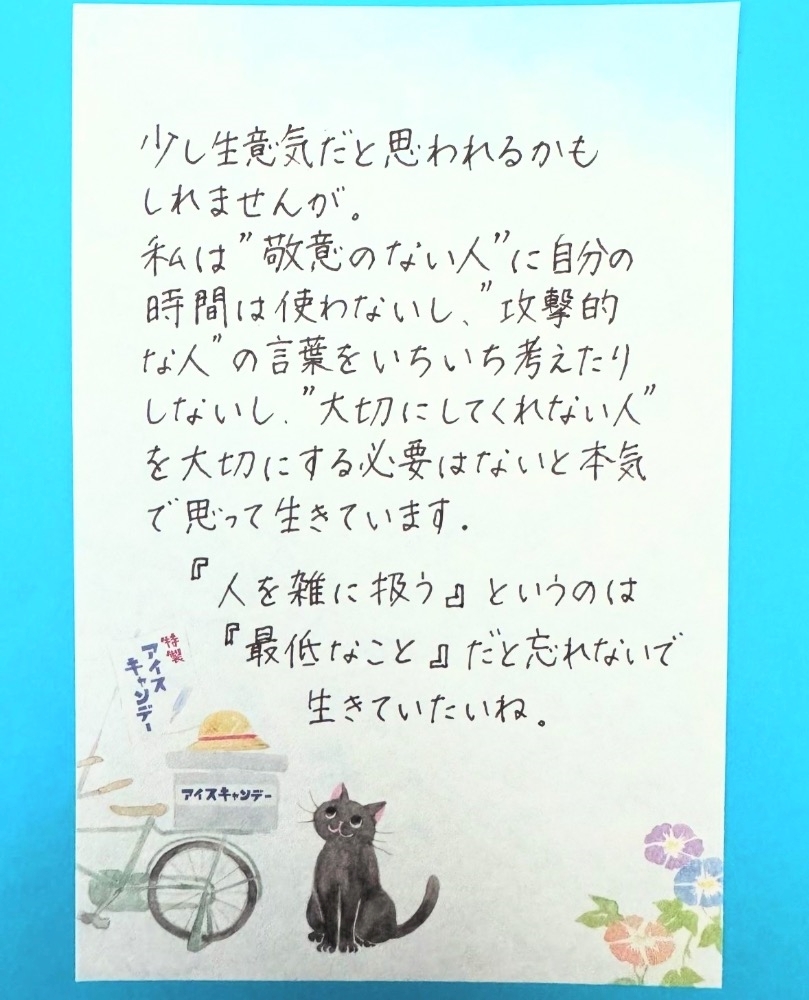 少し生意気だと思われるかも
しれませんが。
私は”敬意のない人”に自分の
時間は使わないし、”攻撃的
な人”の言葉をいちいち考えたり
しないし、”大切にしてくれない人”
を大切にする必要はないと本気
で思って生きています。
『人を雑に扱う』というのは
『最低なこと』だと忘れないで
生きていたいね。
特製
アイス
キャンデー
アイスキャンデー